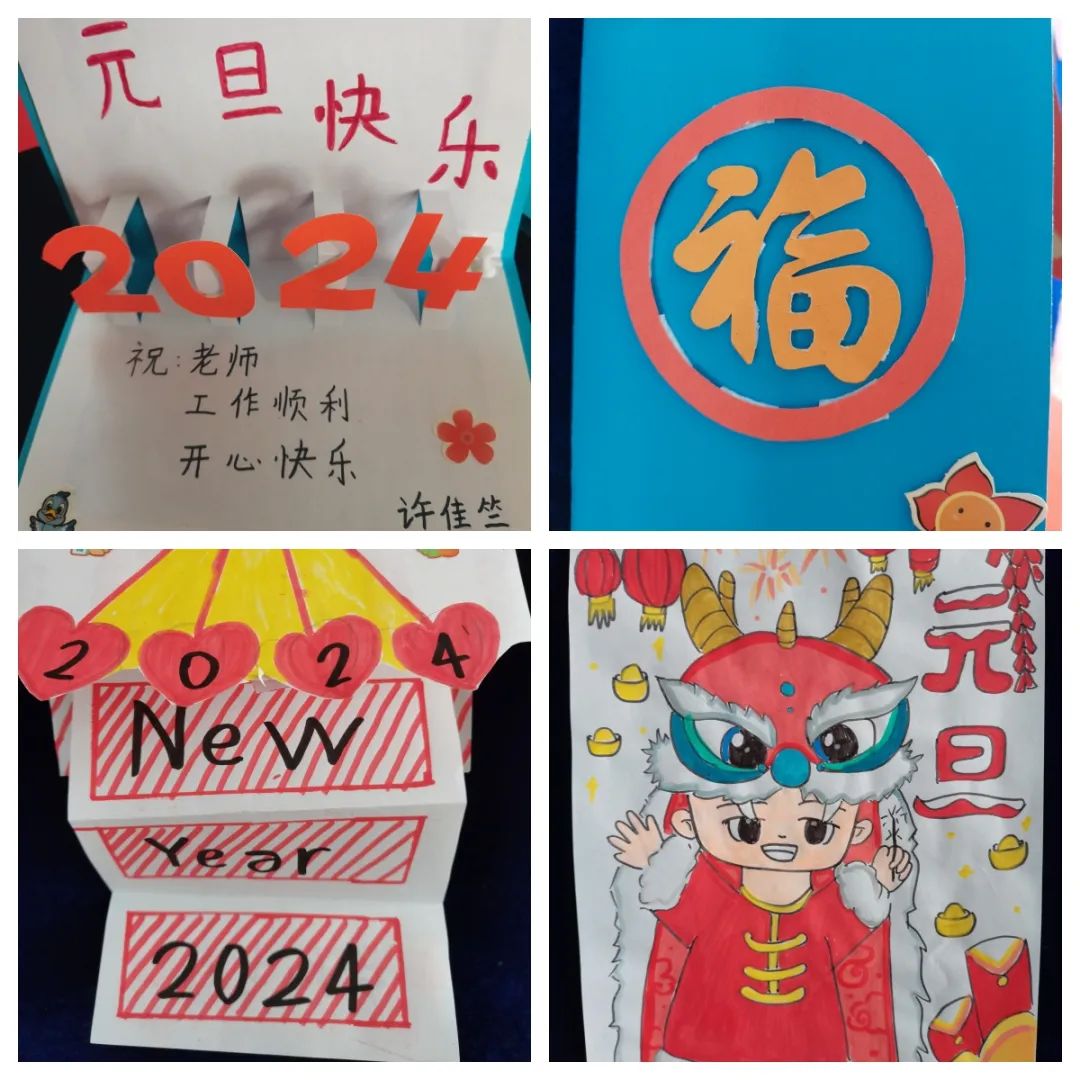 元旦快乐
2024
祝:老师
工作顺利
开心快乐
许佳竺
福
2024
New
Year
2024
元旦